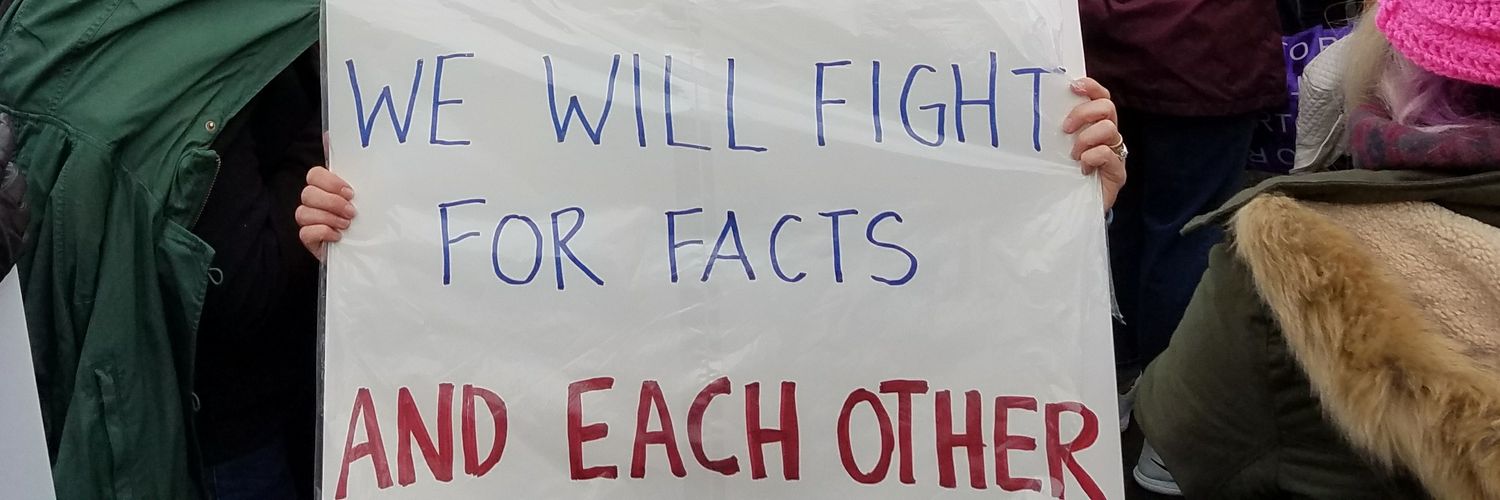 WE WILL FIGHT
FOR FACTS
AND EACH OTHER